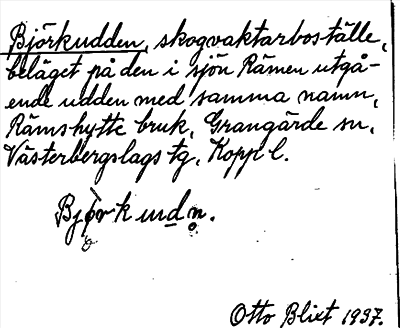 Björkudden, skogvaktarboställe,
beläget på den i sjön Rämen utgå-
ende udden med samma namn,
Rämshytte bruk, Grangärde sn,
Västerbergslags tg, Kopp l.
Björkudn.
Otto Blixt 1937.